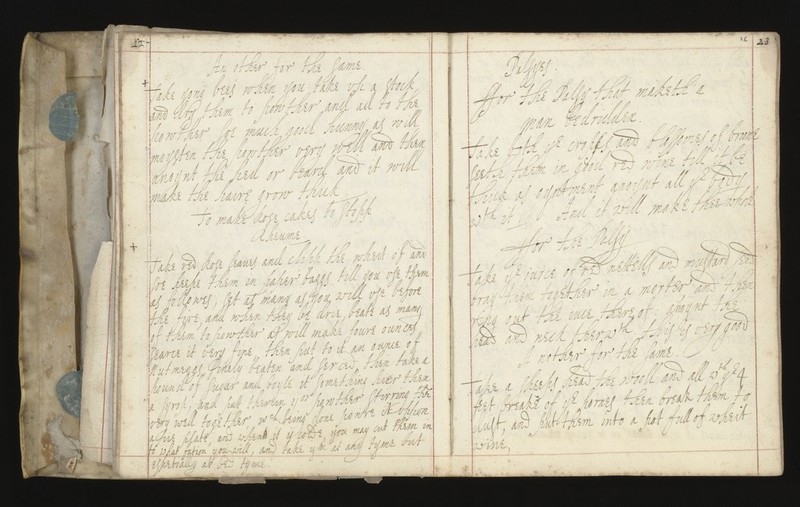 An other for the same
Take yong bees when you take up a stock
and dry them to powther and all to the
powther put much good hunny as will
moysten the powther very well and then
anoynt the head or beard and it will
make the haire grow thick
To make Rose cakes to stopp
Rheume
Take red Rose leaves and clipp the whent of and
keepe them in paper baggs till you use them
as followes, set as many as you will use before
the fyre, and when they be drie, beate as many
of them to powther as will make foure ounces
searce it very fyne, then put to it an ounce of
Nutmegges, finely beaten and serced, then take a
pound of sugar and boyle it something hier then
a syrop, and put therein yor powther stirring them
very well together, wch being done powre it upon
a plate, and when it is could, you may cut them in
to what fation you will, and take ym at any tyme but
espetially at bed tyme
23
Palsyes
ffor the Palsy that maketh a
man bedridden
Take ye cropps and blossomes of broome
seethe them in good red wine till it be
thick as oyntment anoynt all ye body
wth it And it will make thee whole
ffor the Palsy
Take ye juice of red nettells and mustard seed
bray them together in a morter and then
wring out the juce thereof, anoynt the
head and neck therwth this is very good
A nother for the same
Take a sheeps head the wooll and all wth ye 4
feet breake of ye hornes then break them to
dust, and put them into a pot full of wheit
wine,